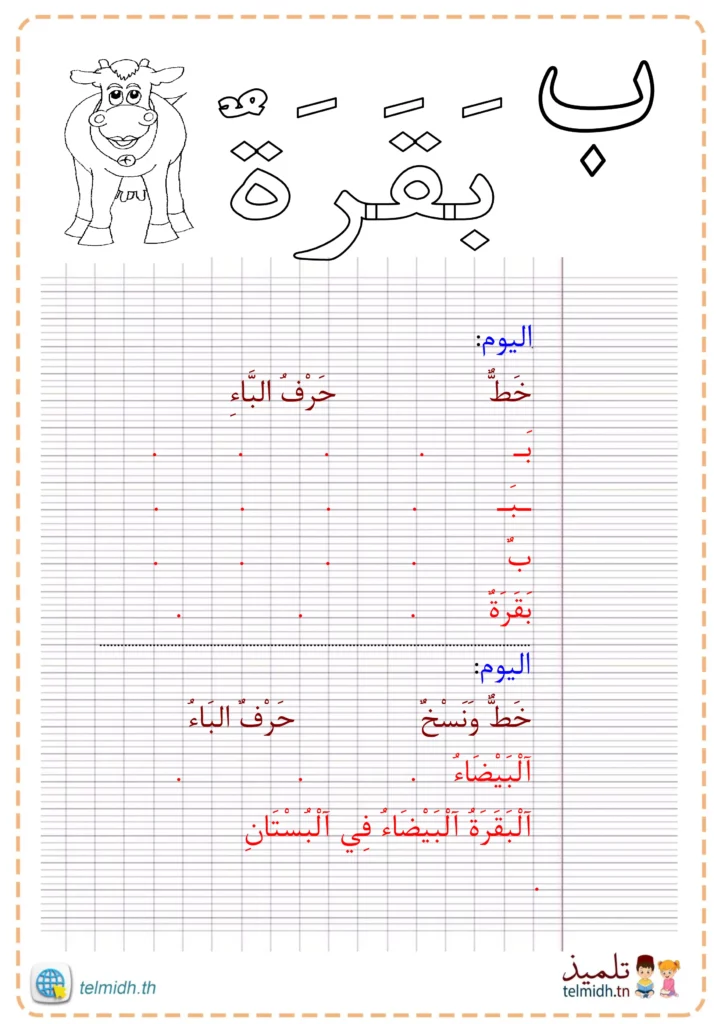 ب
بَقَرَةٌ
اليوم:
خَطٌّ حَرْفُ البَّاءِ
بَـ . . . .
ـبَـ . . . .
بٌ . . . .
بَقَرَةٌ . . .
اليوم:
خَطٌّ وَنَسْخٌ حَرْفٌ البَاءُ
اَلْبَيْضَاءُ . . .
اَلْبَقَرَةُ اَلْبَيْضَاءُ فِي اَلْبُسْتَانِ
.
telmidh.th
تلميذ
telmidh.tn